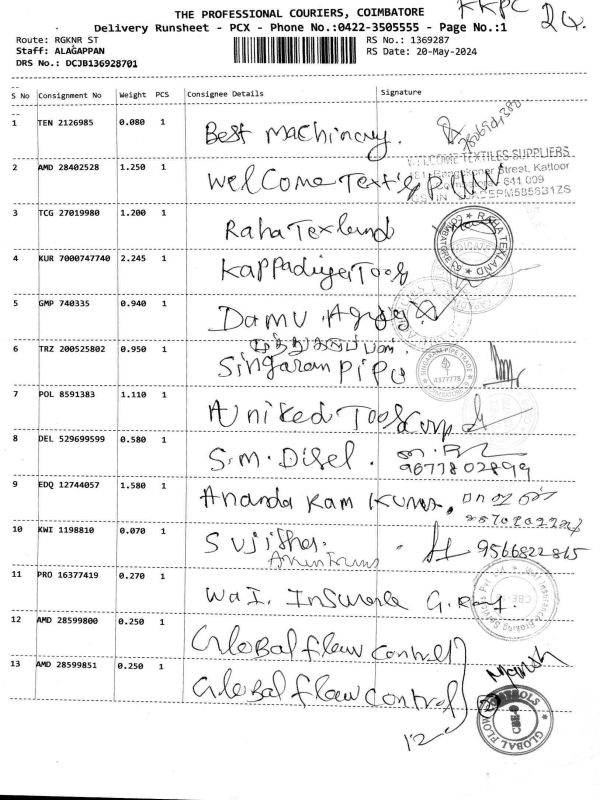 KKPC
THE PROFESSIONAL COURIERS, COIMBATORE
Delivery Runsheet - PCX - Phone No.:0422-3505555 - Page No.:1
Route: RGKNR ST
RS No.: 1369287
Staff: ALAGAPPAN
RS Date: 20-May-2024
DRS No.: DCJB136928701
S No Consignment No Weight PCS Consignee Details Signature
1 TEN 2126985 0.080 1 Best Machinery.
2 AMD 28402528 1.250 1 Welcome Textile
WELCOME TEXTILES SUPPLIERS
Street, Kattoor
641 009
3 TCG 27019980 1.200 1 Raha Texland
RAHA TEXLAND
COIMBATORE
4 KUR 7000747740 2.245 1 Kappadiyer Tools
5 GMP 740335 0.940 1 Damu Agency
6 TRZ 200525802 0.950 1 Singaram Pipe
SINGARAM PIPE TRADE
4377778
7 POL 8591383 1.110 1 A United Tools Corp
8 DEL 529699599 0.580 1 S.M. Disel.
9677802899
9 EDQ 12744057 1.580 1 Ananda Ram Kumar,
10 KWI 1198810 0.070 1 Sujitha. 9566822865
11 PRO 16377419 0.270 1 Wa I. Insurance
12 AMD 28599800 0.250 1 Global flow control
13 AMD 28599851 0.250 1 Global flow control
Manish
12
GLOBAL FLOW CONTROLS